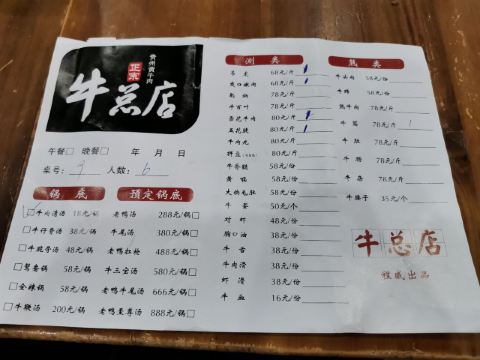 贵州黄牛肉
正宗
牛总店
午餐□ 晚餐□ 年 月 日
桌号: 9 人数: 6
锅 底
牛肉清汤 18元/锅□
牛仔骨汤 38元/锅□
牛脱骨汤 48元/锅□
鸳鸯锅 58元/锅□
全辣锅 58元/锅□
牛鞭汤 200元/锅□
预定锅底
老鸭汤 288元/锅□
牛尾汤 380元/锅□
老鸭扛枪 488元/锅□
牛三宝汤 580元/锅□
老鸭牛尾汤 666元/锅□
老鸭至尊汤 888元/锅□
涮 类
吊龙 68元/斤
爽口嫩肉 68元/斤
匙柄 78元/斤
牛百叶 78元/斤
雪花牛肉 80元/斤
五花腱 80元/斤
牛肉丸 80元/斤
牛脊髓 58元/份
黄喉 58元/份
火焰毛肚 58元/份
牛鉴 50元/个
对虾 48元/份
胸口油 38元/份
牛舌 38元/份
牛肉滑 38元/份
虾滑 38元/份
牛血 16元/份
熟 类
牛头肉 58元/份
牛蹄 58元/份
熟牛肉 78元/斤
牛筋 78元/斤 1
牛肚 78元/斤
牛肠 78元/斤
牛杂 78元/斤
牛膝子 35元/个
牛总店
程威出品